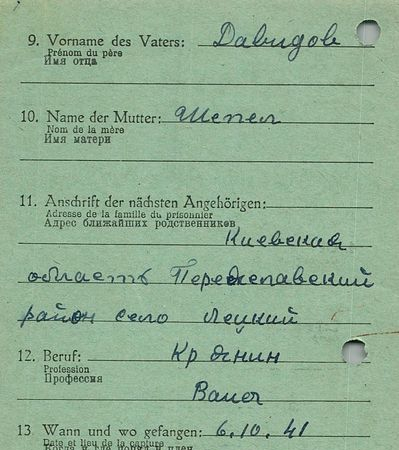 9. Vorname des Vaters: Давидов
Prénom du père
Имя отца
10. Name der Mutter: Шепел
Nom de la mère
Имя матери
11. Anschrift der nächsten Angehörigen:
Adresse de la famille du prisonnier
Адрес ближайших родственников
Киевская
область
район село
12. Beruf:
Profession
Профессия
Bauer
13 Wann und wo gefangen: 6.10.41
Date et lieu de la capture
Когда и где попал в плен